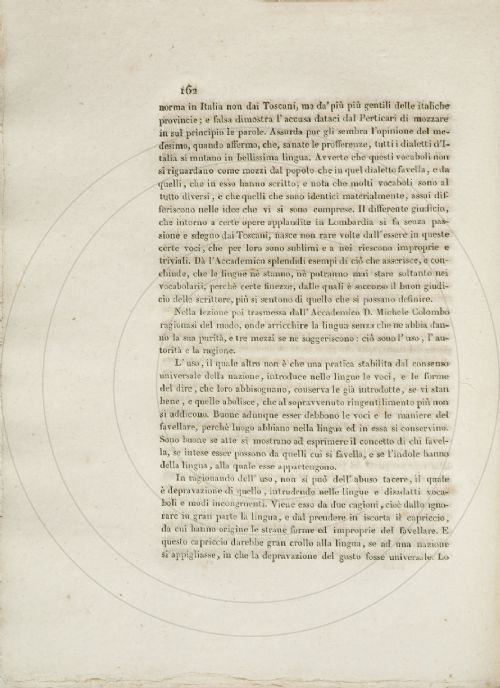 162
norma in Italia non dai Toscani, ma da' più più gentili delle italiche
provincie; e falsa dimostra l'accusa dataci dal Perticari di mozzare
in sul principio le parole. Assurda por gli sembra l'opinione del me-
desimo, quando afferma, che, sanate le profferenze, tutti i dialetti d'I-
talia si mutano in bellissima lingua. Avverte che questi vocaboli non
si riguardano come mozzi dal popolo che in quel dialetto favella, e da
quelli, che in esso hanno scritto; e nota che molti vocaboli sono al
tutto diversi, e che quelli che sono identici materialmente, assai dif-
feriscono nelle idee che vi si sono comprese. Il differente giudicio,
che intorno a certe opere applaudite in Lombardia si fa senza pas-
sione e sdegno dai Toscani, nasce non rare volte dall'essere in queste
certe voci, che per loro sono sublimi e a noi riescono improprie e
triviali. Dà l'Accademico splendidi esempi di ciò che asserisce, e con-
chiude, che le lingue nè stanno, nè potranno mai stare soltanto nei
vocabolarii; perchè certe finezze, dalle quali è soccorso il buon giudi-
cio dello scrittore, più si sentono di quello che si possano definire.
Nella lezione poi trasmessa dall'Accademico D. Michele Colombo
ragionasi del modo, onde arricchire la lingua senza che ne abbia dan-
no la sua purità, e tre mezzi se ne suggeriscono: ciò sono l'uso, l'au-
torità e la ragione.
L'uso, il quale altro non è che una pratica stabilita dal consenso
universale della nazione, introduce nelle lingue le voci, e le forme
del dire, che loro abbisognano, conserva le già introdotte, se vi stan
bene, e quelle abolisce, che al sopravvenuto ringentilimento più non
si addicono. Buone adunque esser debbono le voci e le maniere del
favellare, perchè luogo abbiano nella lingua ed in essa si conservino.
Sono buone se atte si mostrano ad esprimere il concetto di chi favel-
la, se intese esser possono da quelli cui si favella, e se l'indole hanno
della lingua, alla quale esse appartengono.
In ragionando dell'uso, non si può dell'abuso tacere, il quale
è depravazione di quello, intrudendo nelle lingue e disadatti voca-
boli e modi incongruenti. Viene esso da due cagioni, cioè dallo igno-
rare in gran parte la lingua, e dal prendere in iscorta il capriccio,
da cui hanno origine le strane forme ed improprie del favellare. E
questo capriccio darebbe gran crollo alla lingua, se ad una nazione
si appigliasse, in che la depravazione del gusto fosse universale. Lo